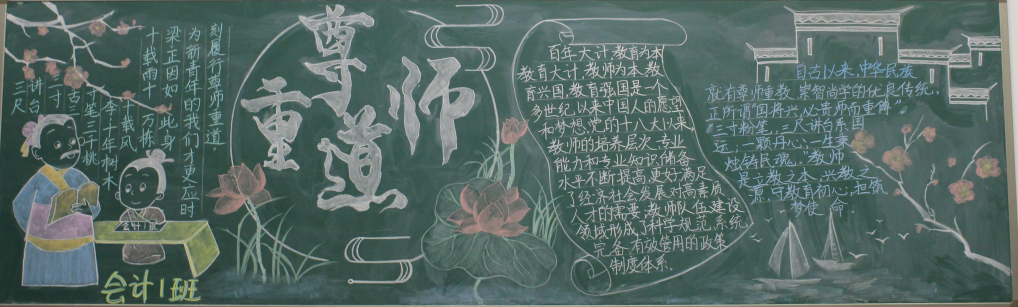 三尺
讲台
寸笔三千桃
李十年树木
十载风
十载雨十万栋
梁正因如此身
为新青年的我们才更应时
刻履行尊师重道
会计1班
会计1班
尊师
重道
百年大计,教育为本
教育大计,教师为本,教
育兴国,教育强国是一个
多世纪以来中国人的愿望
和梦想,党的十八大以来
教师的培养层次,专业
能力和专业知识储备
水平不断提高,更好满足
了经济社会发展对高素质
人才的需要,教师队伍建设
领域形成了科学规范,系统
完备,有效管用的政策
制度体系.
自古以来,中华民族
就有尊师重教,崇智尚学的优良传统,
正所谓“国将兴,心贵师而重傅”
“三寸粉笔,三尺讲台系国
运;一颗丹心,一生秉
烛铸民魂。”教师
是立教之本,兴教之
源,守教育初心,担筑
梦使命